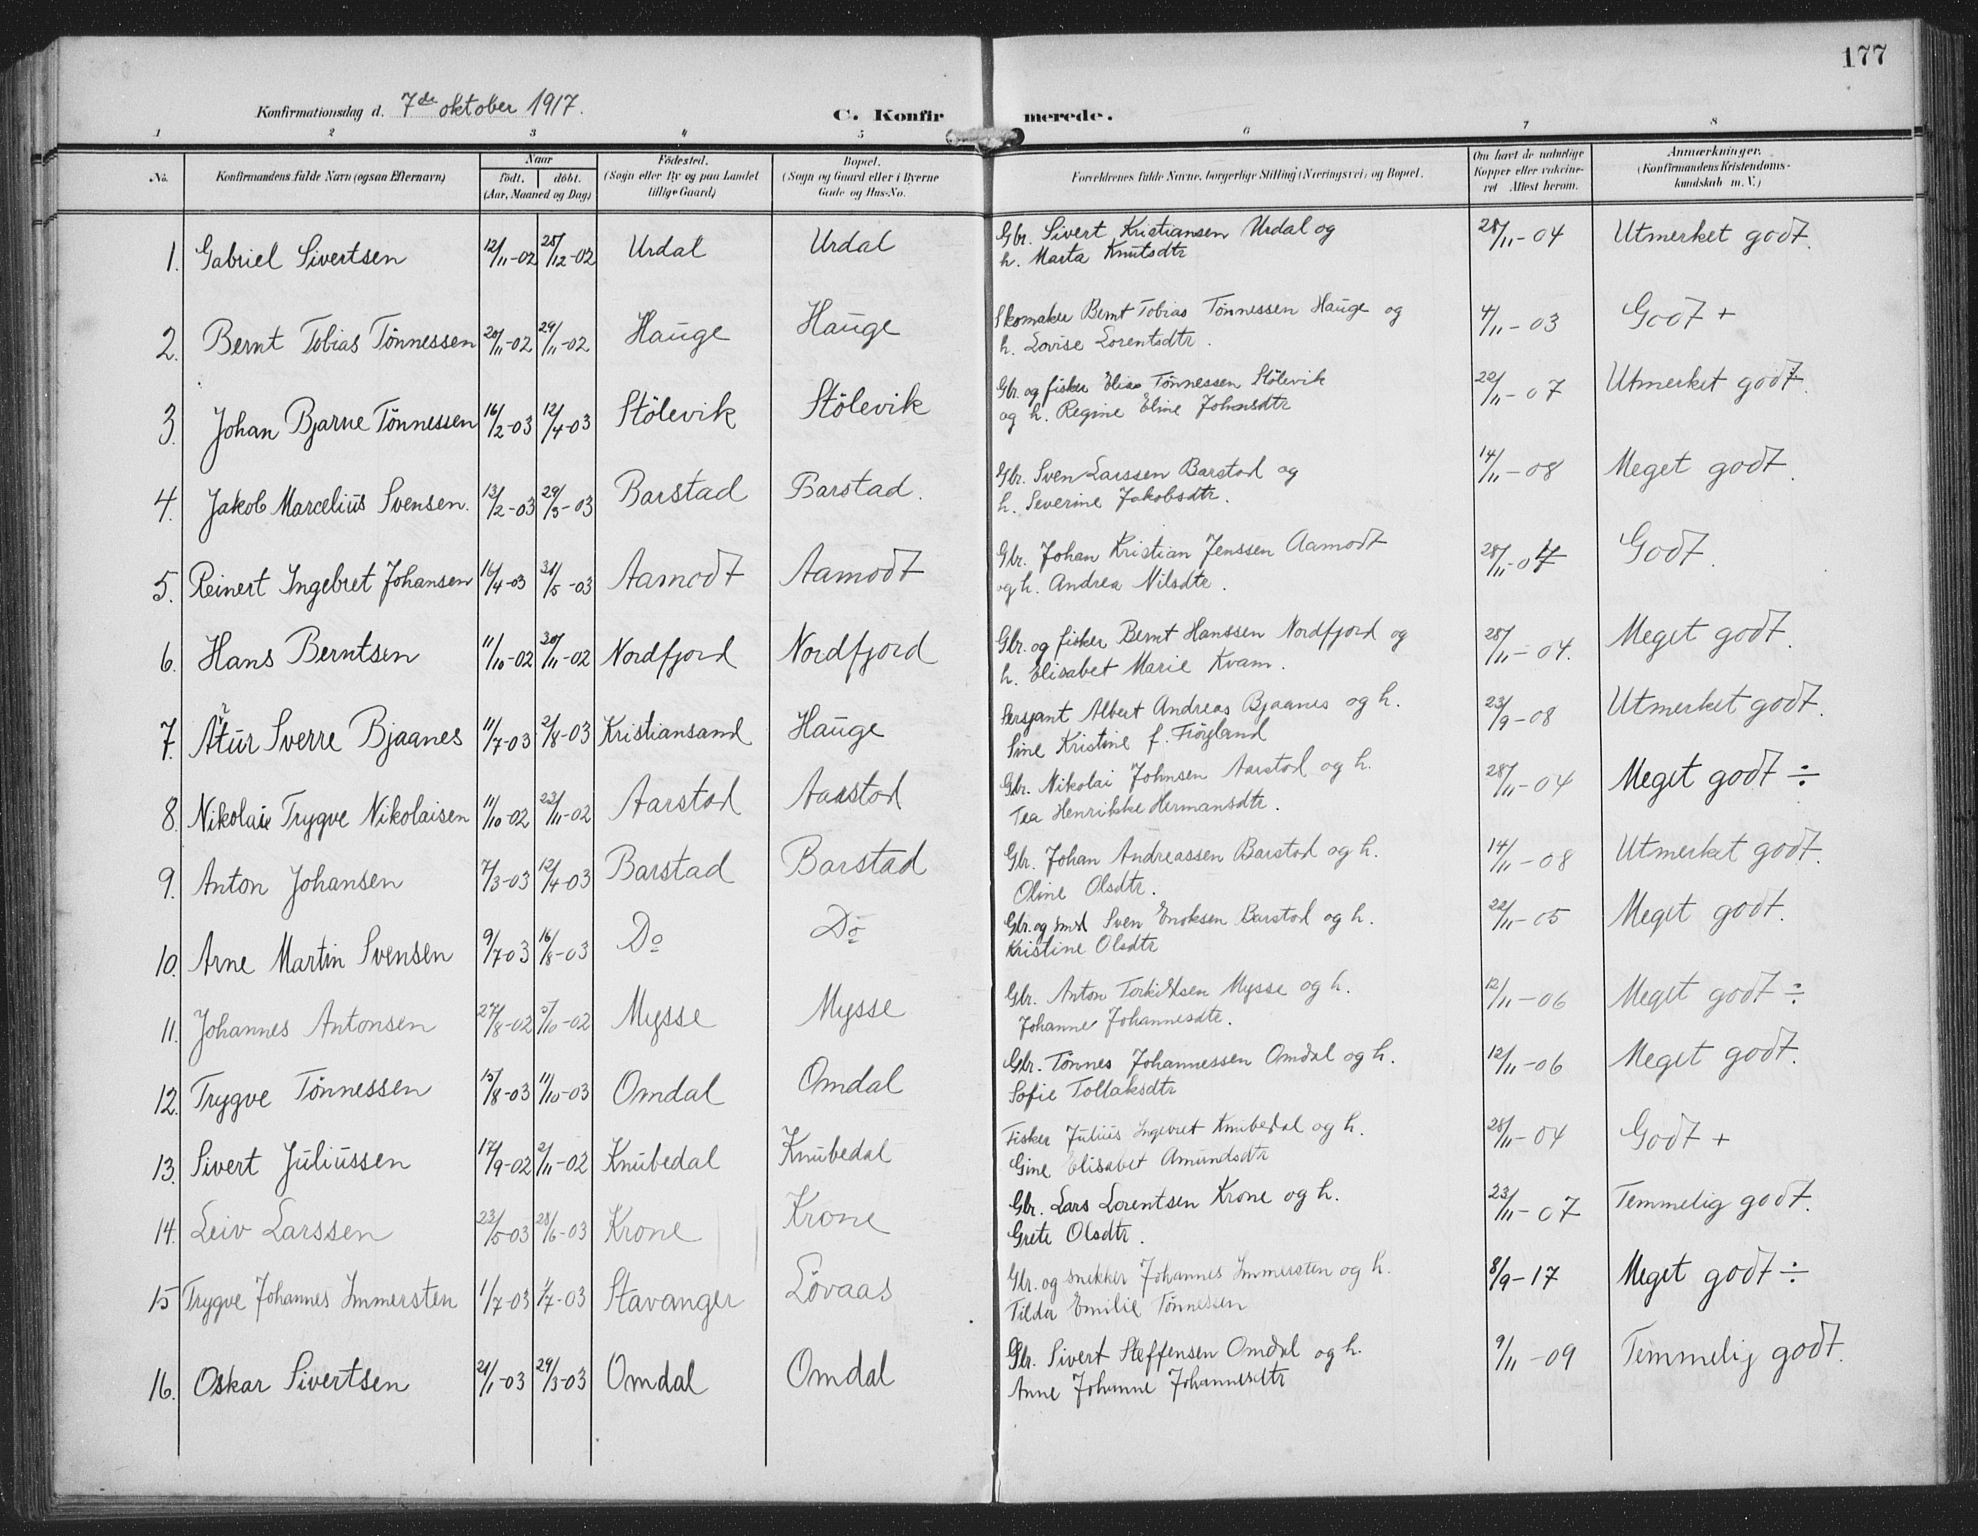 177
Konfirmationsdag d. 7de oktober 1917.
C. Konfirmerede.
1 2 3 4 5 6 7 8
No. Konfirmandens fulde Navn (ogsaa Efternavn) Naar født. døbt. (Aar, Maaned og Dag) Fødested. (Sogn eller By og paa Landet tillige Gaard) Bopæl. (Sogn og Gaard eller i Byerne Gade og Hus-No. Forældrenes fulde Navne, borgerlige Stilling (Næringsvei) og Bopæl. Om havt de naturlige Kopper eller vakcineret. Attest herom. Anmærkninger. (Konfirmandens Kristendomskundskab m. V.)
1. Gabriel Sivertsen 12/11-02 28/12-02 Urdal Urdal Gbr. Sivert Kristiansen Urdal og 28/11-04 Utmerket godt.
h. Marta Knutsdtr
2. Bernt Tobias Tønnessen 20/11-02 29/11-02 Hauge Hauge Skomaker Bernt Tobias Tønnessen Hauge og 4/11-03 Godt +
h. Lovise Lorentsdtr.
3. Johan Bjarne Tønnessen 16/2-03 12/4-03 Stölevik Stölevik Gbr. og fisker Elias Tønnessen Stölevik 22/11-07 Utmerket godt.
og h. Regine Eline Johnsdtr
4. Jakob Marcelius Svensen. 13/2-03 29/3-03 Barstad Barstad. Gbr. Sven Larssen Barstad og 14/11-08 Meget godt.
h. Severine Jakobsdtr.
5. Reinert Ingebret Johansen 16/4-03 31/5-03 Aamodt Aamodt Gbr. Johan Kristian Jenssen Aamodt 28/11-04 Godt.
og h. Andrea Nilsdtr.
6. Hans Berntsen 11/10-02 30/11-02 Nordfjord Nordfjord Gbr. og fisker Bernt Hanssen Nordfjord og 28/11-04. Meget godt.
h. Elisabet Marie Kvam.
7. Artur Sverre Bjaanes 11/7-03 2/8-03 Kristiansand Hauge Sersjant Albert Andreas Bjaanes og h. 23/9-08 Utmerket godt.
Sine Kristine f. Frøyland
8. Nikolai Trygve Nikolaisen 11/10-02 23/11-02 Aarstad Aarstad Gbr. Nikolai Johnsen Aarstad og h. 28/11-04 Meget godt ÷
Tea Henrikke Hermansdtr.
9. Anton Johansen 7/3-03 12/4-03 Barstad Barstad Gbr. Johan Andreassen Barstad og h. 14/11-08 Utmerket godt.
Oline Olsdtr.
10. Arne Martin Svensen 9/7-03 16/8-03 Do Do Gbr. og smed Sven Enoksen Barstad og h. 22/11-05 Meget godt.
Kristine Olsdtr
11. Johannes Antonsen 27/8-02 5/10-02 Mysse Mysse Gbr. Anton Torkildsen Mysse og h. 12/11-06 Meget godt ÷
Johanne Johannesdtr.
12. Trygve Tønnessen 15/8-03 11/10-03 Omdal Omdal Gbr. Tønnes Johannessen Omdal og h. 12/11-06 Meget godt.
Sofie Tollaksdtr
13. Sivert Juliussen 17/9-02 2/11-02 Knubedal Knubedal Fisker Julius Ingevret Knubedal og h. 28/11-04 Godt +
Gine Elisabet Amundsdtr
14. Leiv Larssen 23/5-03 28/6-03 Krone Krone Gbr. Lars Lorentsen Krone og h. 23/11-07 Temmelig godt.
Grete Olsdtr.
15 Trygve Johannes Immersten 1/7-03 1/7-03 Stavanger Lövaas Gbr. og snekker Johannes Immersten og h. 8/9-17 Meget godt ÷
Tilda Emilie Tønnessen
16. Oskar Sivertsen 21/1-03 29/3-03 Omdal Omdal Gbr. Sivert Steffensen Omdal og h. 9/11-09 Temmelig godt.
Anne Johanne Johannesdtr